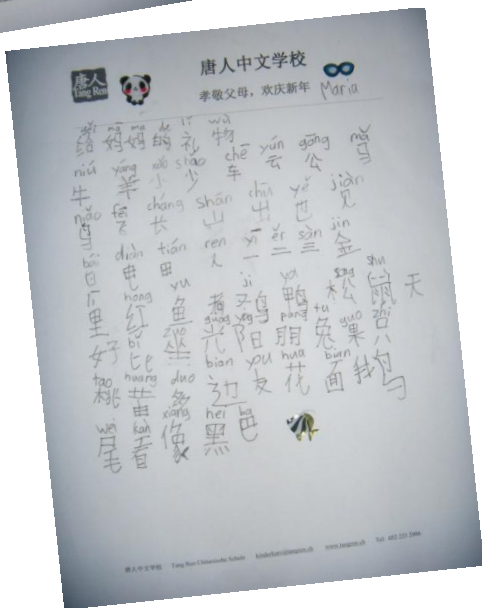 唐人
Tang Ren
唐人中文学校
孝敬父母，欢庆新年
Maria
gěi mā ma de lǐ wù
给妈妈的礼物
niú yáng xiǎo shǎo chē yún gōng mǎ
牛羊小少车云公马
niǎo fēi cháng shān chū yě jiàn
鸟飞长山出也见
bái diàn tián ren yī èr sān jīn
白电田人一二三金
hong yu ji ya song shu
里红鱼鸡鸭松鼠天
bi zuo guang yang peng tu guo zhi
好比坐光阳朋兔果只
tao huang duo bian you hua bian
桃黄多边友花面我的
wei kan xiang hei ba
尾看像黑色
唐人中文学校 Tang Ren Chinesische Schule www.tangren.ch